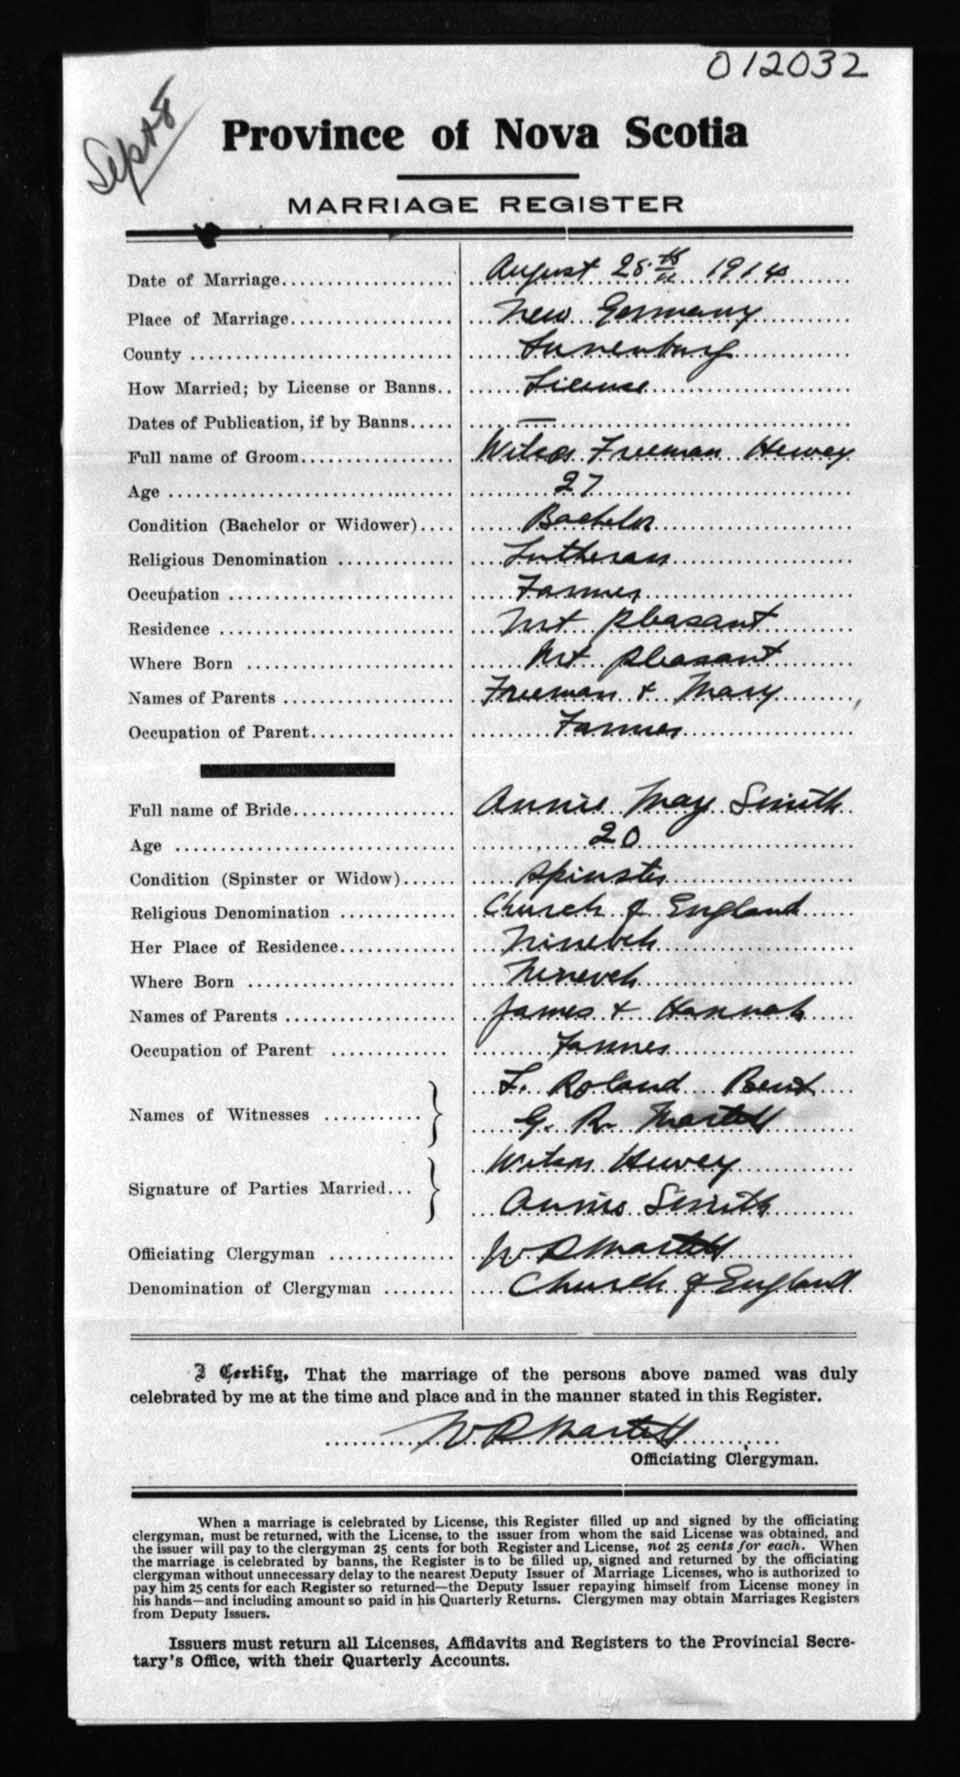 012032
Sept 8
Province of Nova Scotia
MARRIAGE REGISTER
Date of Marriage.................... August 25th 1914
Place of Marriage................... New Germany
County ............................. Lunenburg
How Married; by License or Banns.. License
Dates of Publication, if by Banns..... —
Full name of Groom.................. Wilson Freeman Huvey
Age ................................ 27
Condition (Bachelor or Widower).... Bachelor
Religious Denomination ............. Lutheran
Occupation ......................... Farmer
Residence .......................... Mt Pleasant
Where Born ......................... Mt Pleasant
Names of Parents ................... Freeman & Mary
Occupation of Parent................ Farmer
Full name of Bride.................. Annie May Smith
Age ................................ 20
Condition (Spinster or Widow)...... Spinster
Religious Denomination ............. Church of England
Her Place of Residence............. Nineveh
Where Born ......................... Nineveh
Names of Parents ................... James & Hannah
Occupation of Parent .............. Farmer
Names of Witnesses ........... } F. Roland Bent
G. R. Martell
Signature of Parties Married... } Wilson Huvey
Annie Smith
Officiating Clergyman .............. W R Martell
Denomination of Clergyman ........ Church of England
I Certify, That the marriage of the persons above named was duly
celebrated by me at the time and place and in the manner stated in this Register.
W R Martell
Officiating Clergyman.
When a marriage is celebrated by License, this Register filled up and signed by the officiating
clergyman, must be returned, with the License, to the issuer from whom the said License was obtained, and
the issuer will pay to the clergyman 25 cents for both Register and License, not 25 cents for each. When
the marriage is celebrated by banns, the Register is to be filled up, signed and returned by the officiating
clergyman without unnecessary delay to the nearest Deputy Issuer of Marriage Licenses, who is authorized to
pay him 25 cents for each Register so returned—the Deputy Issuer repaying himself from License money in
his hands—and including amount so paid in his Quarterly Returns. Clergymen may obtain Marriages Registers
from Deputy Issuers.
Issuers must return all Licenses, Affidavits and Registers to the Provincial Secre-
tary's Office, with their Quarterly Accounts.